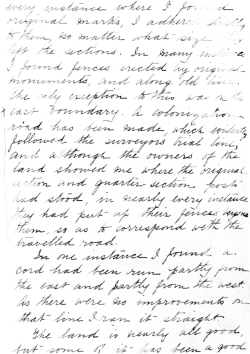 every instance where I found
original marks, I adhered
to them, no matter what size
left the sections. In many
I found fences erected by original
monuments, and along old lines,
the only exception to this was
east boundary. A colonization
road has been made which
followed the surveyors trial line,
and although the owners of the
land showed me where the original
section and quarter section posts
had stood, in nearly every instance
they had put up their fences
them, so as to correspond with the
travelled road.
In one instance I found a
cord had been run partly from
the east and partly from the west.
As there were no improvements on
that line I ran it straight
The land is nearly all good,
but some of it has been a good